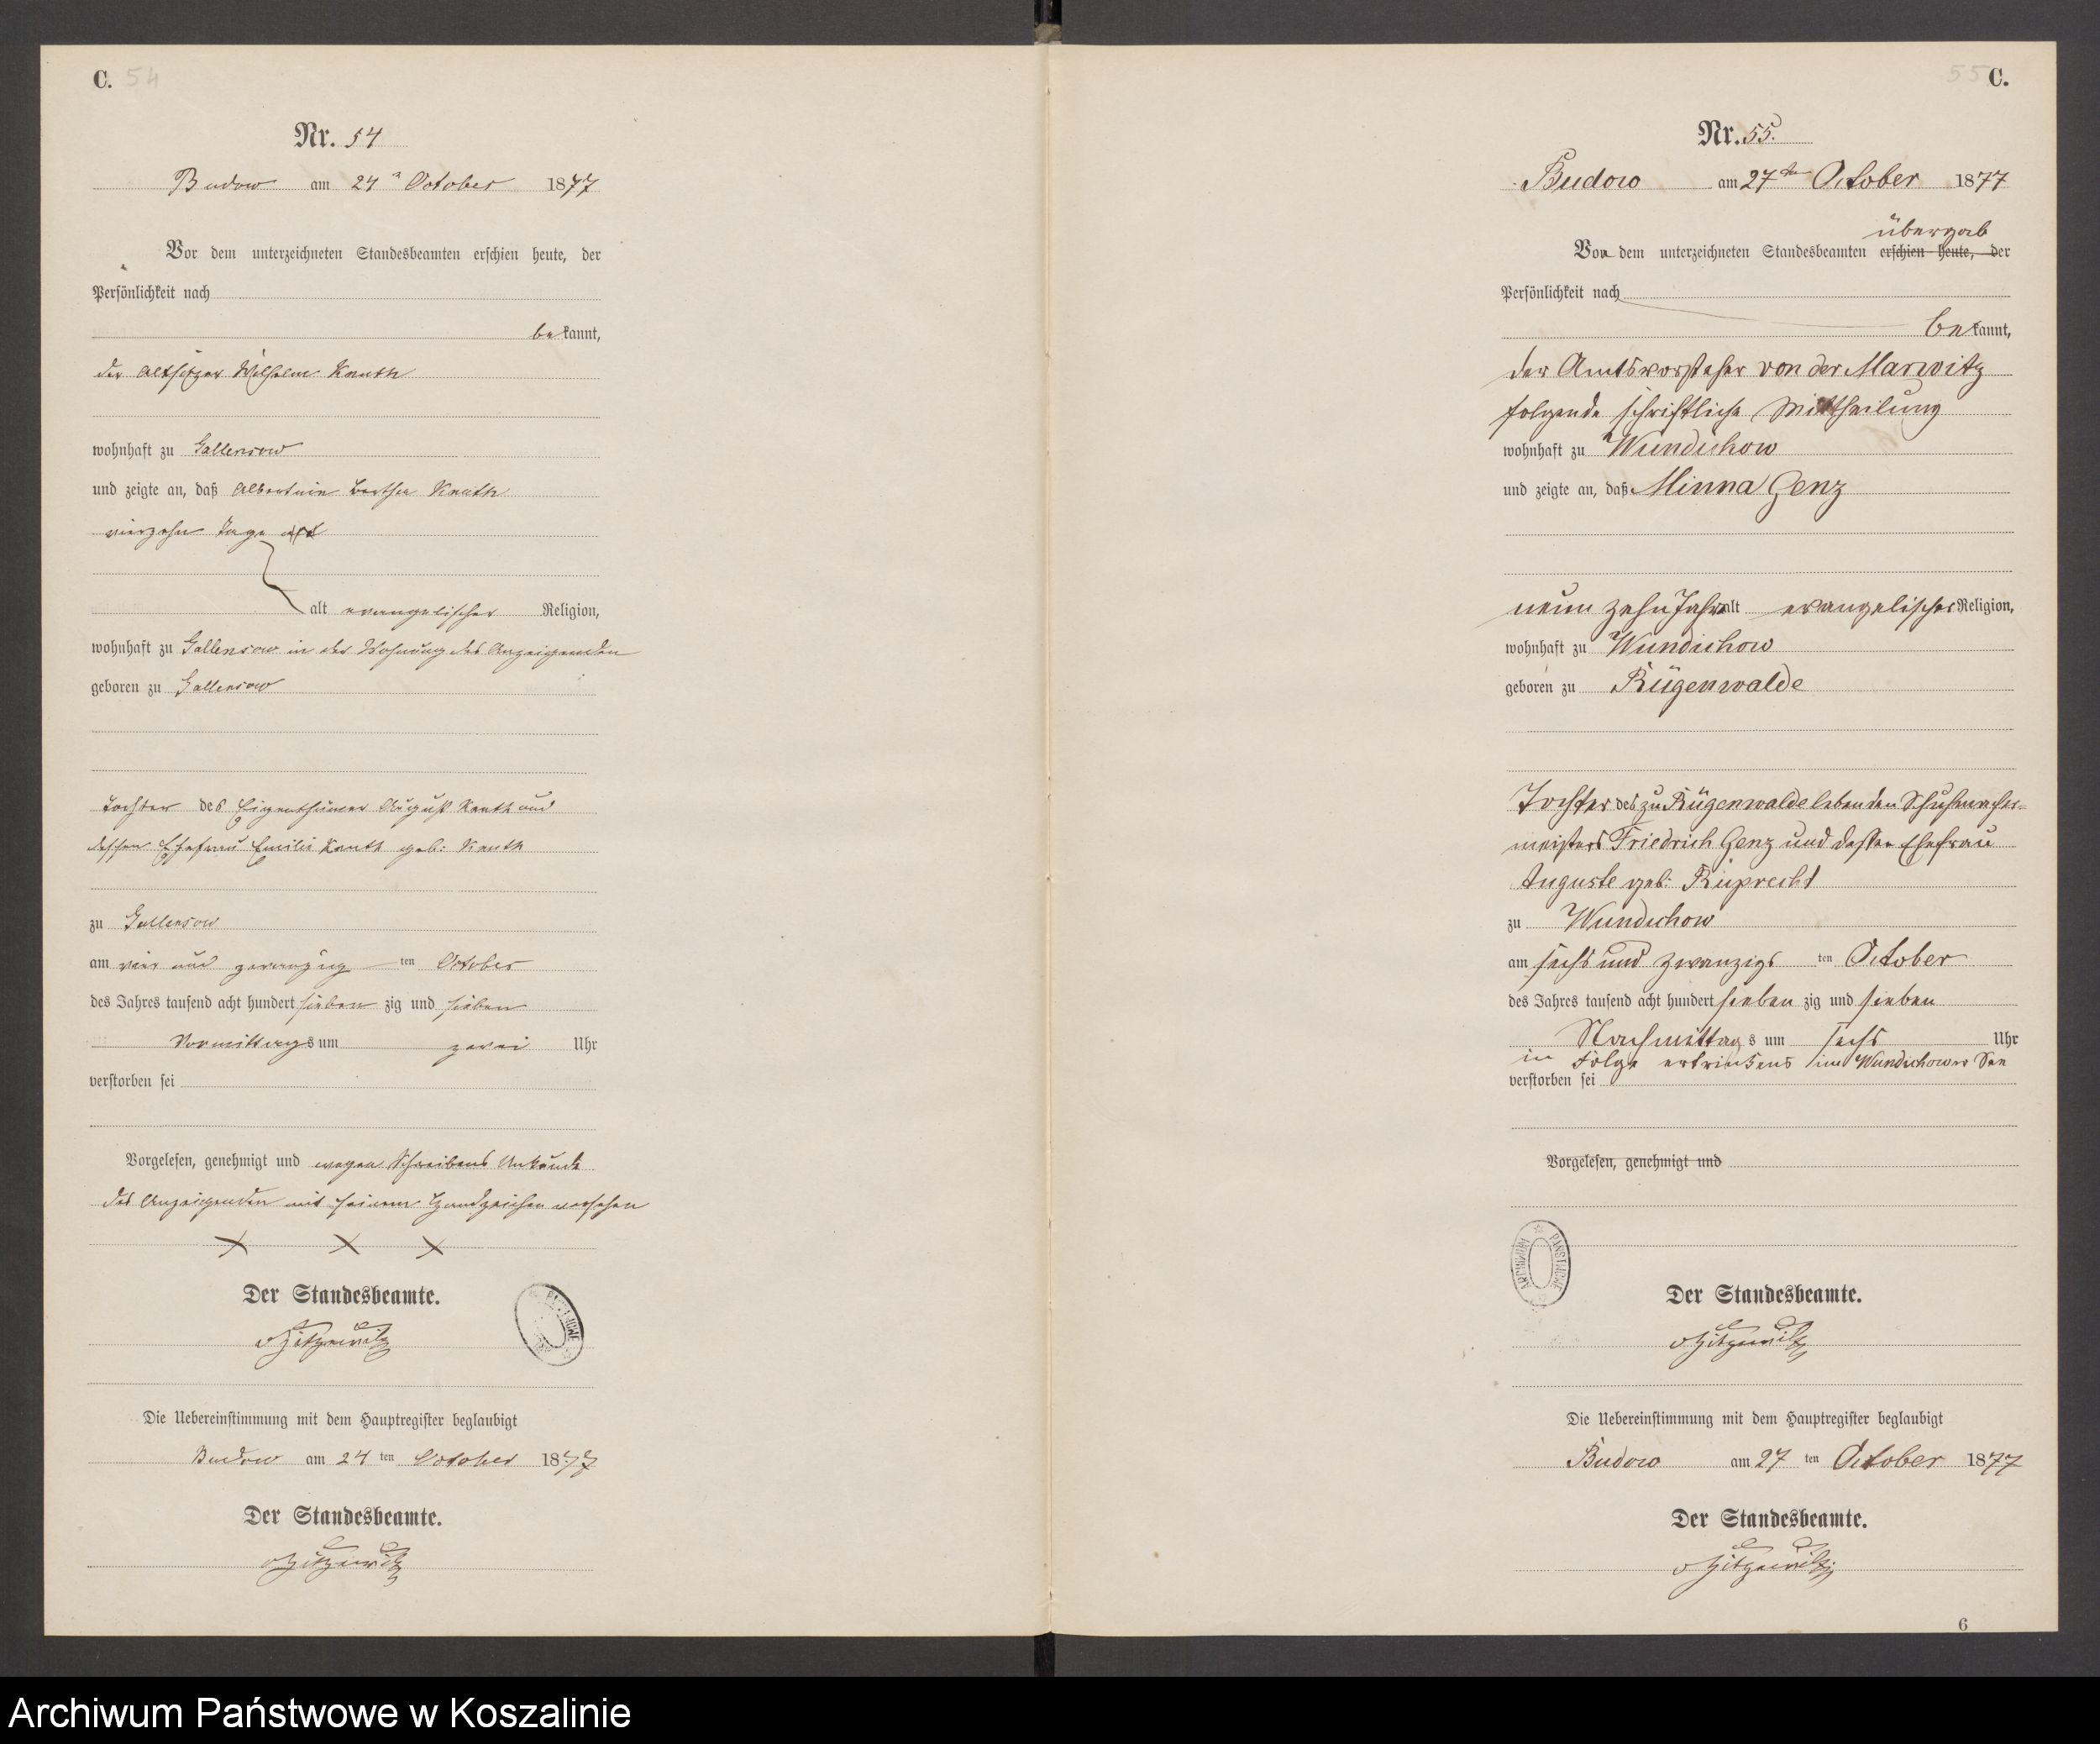 C. 54
Nr. 54
Budow am 24 October 1877
Vor dem unterzeichneten Standesbeamten erschien heute, der
Persönlichkeit nach
bekannt,
der Altsitzer Wilhelm Knuth
wohnhaft zu Gallensow
und zeigte an, daß Albertine Bertha Knuth
vierzehn Tage alt
alt evangelischer Religion,
wohnhaft zu Gallensow in der Wohnung des Anzeigenden
geboren zu Gallensow
Tochter des Eigenthümer August Knuth und
dessen Ehefrau Emilie Knuth geb: Knuth
zu Gallensow
am vier und zwanzig ten October
des Jahres tausend acht hundert sieben zig und sieben
Vormittags um zwei Uhr
verstorben sei
Vorgelesen, genehmigt und wegen Schreibens Unkunde
des Anzeigenden mit seinem Handzeichen versehen
X X X
Der Standesbeamte.
v Zitzewitz
Die Uebereinstimmung mit dem Hauptregister beglaubigt
Budow am 24 ten October 1877
Der Standesbeamte.
v Zitzewitz
55 C.
Nr. 55.
Budow am 27ten October 1877
übergab
Von dem unterzeichneten Standesbeamten erschien heute, der
Persönlichkeit nach
bekannt,
der Amtsvorsteher von der Marwitz
folgende schriftliche Mittheilung
wohnhaft zu Wundichow
und zeigte an, daß Minna Genz
neun zehn Jahr alt evangelischer Religion,
wohnhaft zu Wundichow
geboren zu Rügenwalde
Tochter des zu Rügenwalde lebenden Schuhmacher-
meisters Friedrich Genz und dessen Ehefrau
Auguste geb: Ruprecht
zu Wundichow
am sechs und zwanzigs ten October
des Jahres tausend acht hundert sieben zig und sieben
Nachmittags um sechs Uhr
in Folge ertrinkens im Wundichower See
verstorben sei
Vorgelesen, genehmigt und
ARCHIWUM PAŃSTWOWE
Der Standesbeamte.
v Zitzewitz
Die Uebereinstimmung mit dem Hauptregister beglaubigt
Budow am 27 ten October 1877
Der Standesbeamte.
v Zitzewitz
6
Archiwum Państwowe w Koszalinie